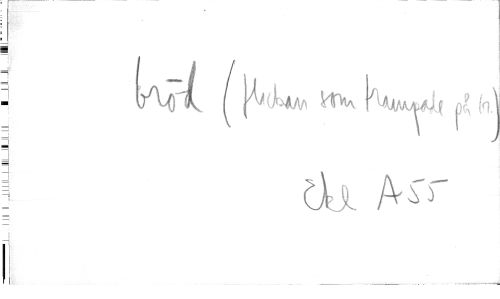 bröd (flickan som trampade på br.)
Ekl A55